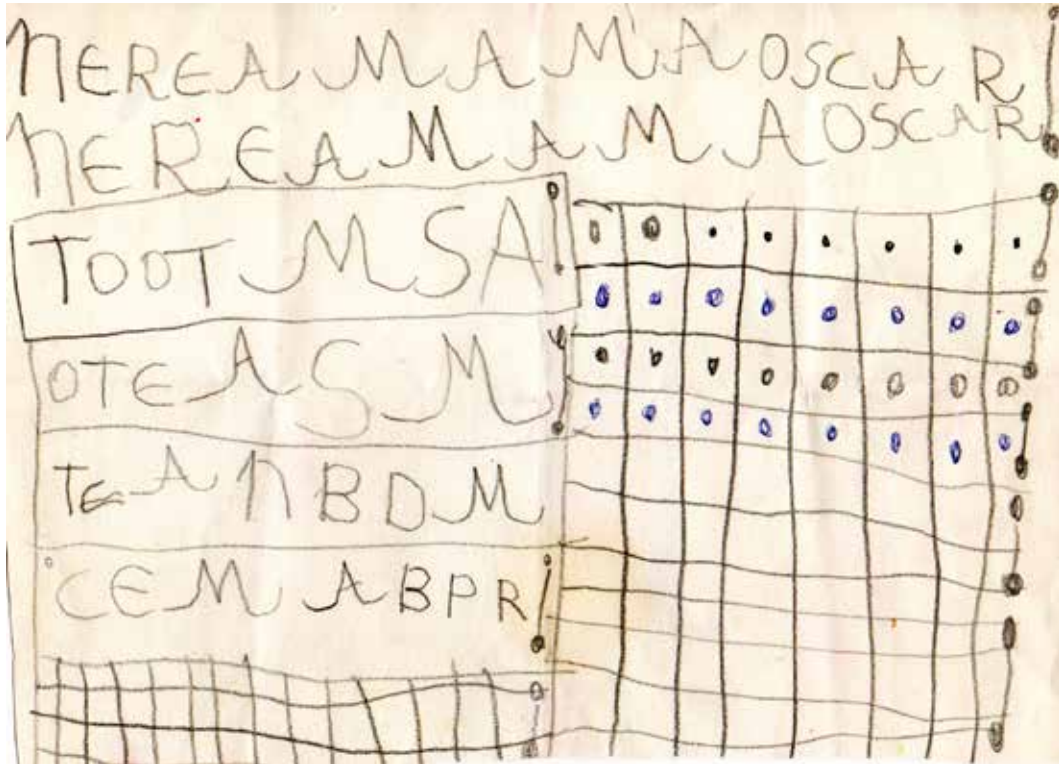 NEREA MAMA OSCAR
NEREA MAMA OSCAR
TOOT MSA
OTEASM
TEANBDM
CEMABPR